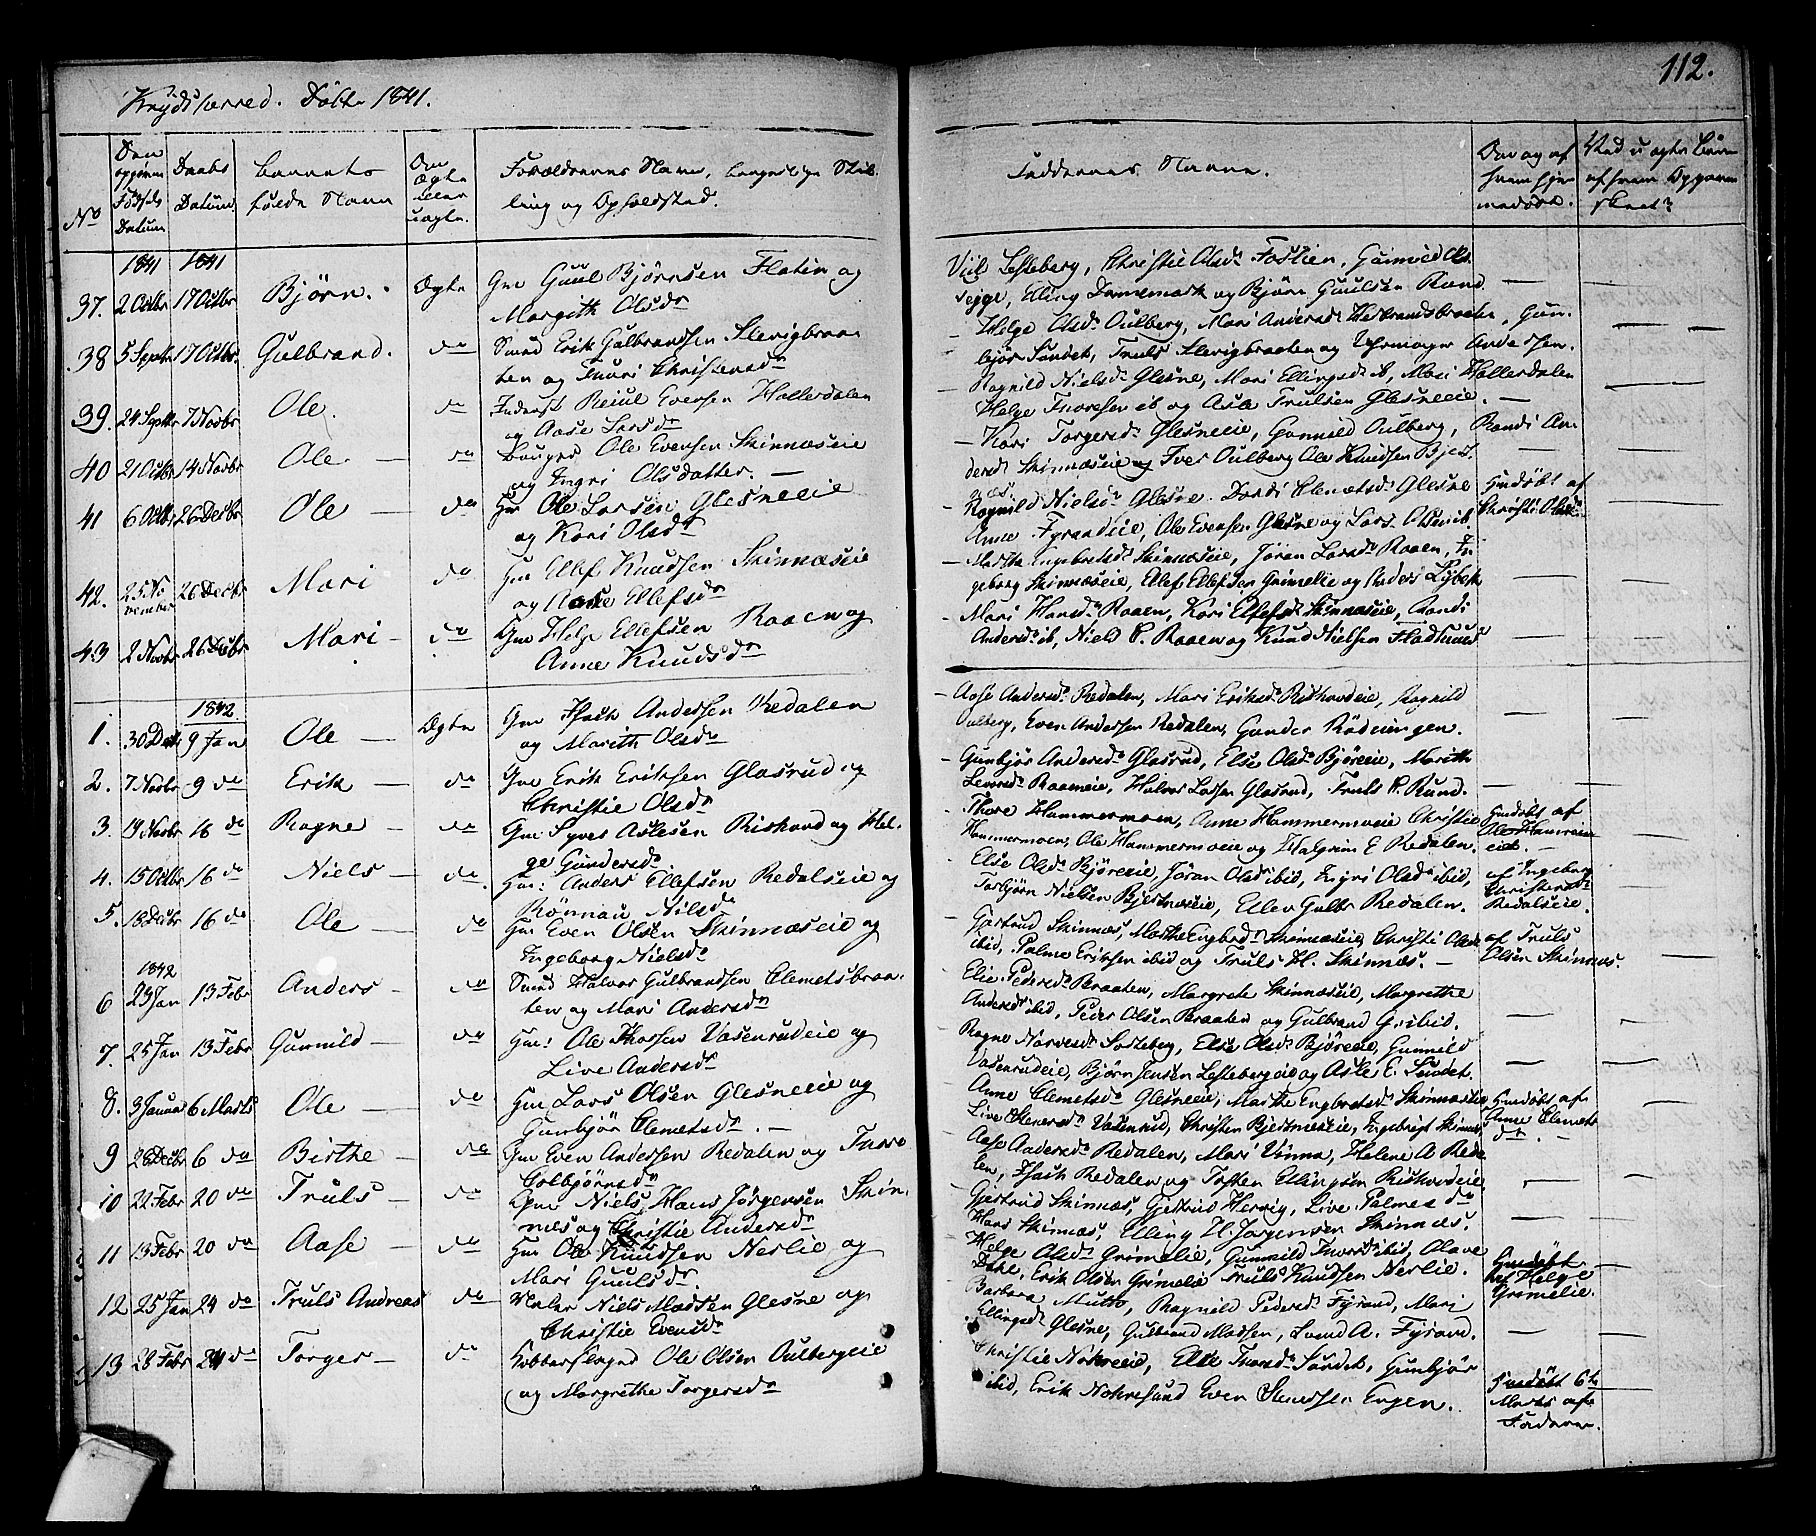 112.
Krydsherred. Døbte 1841.
No
Den opgivne Fødsels Datum
Daabs Datum
Barnets fulde Navn
Om Ægte eller uægte.
Forældrenes Navn, borgerlige Stilling og Opholdsted.
Faddernes Navne.
Om og af hvem hjemmedøbt.
1841 1841
37. 2 Octbr 17 Octbr Bjørn. Ægte Gm Guul Bjørnsen Flatin og
Margith Olsdr
Lesteberg, Christie Olsdr
Elling Dannemark og Bjørn Guulsen Rund.
38 5 Septbr 17 Octbr. Gulbrand. do Erik Gulbrandsen
ten og Thuri Christensdr
Helge Olsdr Oulberg, Mari Andersdr
Sundet, Truls
39. 24 Septbr 7 Novbr Ole. do Evensen Hallesdalen
og Aase Larsdr
Ragnild Nielsdr Glesne, Mari Ellingsdr ib, Mari Hallesdalen
Helge Thoresen ib og Asle Trulsen Glesneeie.
40 21 Octbr 14 Novbr Ole do Ole Evensen Skinnæseie
og Ingri Olsdatter.
Kari Torgersdr Glesneeie, Gunnild Oulberg, Randi An
dersdr Skinnæseie og Iver Oulberg Ole Knudsen
41 6 Octbr 26 Decbr Ole do Gm Ole Larsen Glesneeie
og Kari Olsdr
Ragnild Nielsdr Glesne. Clemetsdr Glesne
Anne Fyrandeie, Ole Evensen Glesne og Lars Olsen ib.
Hmdøbt af
Christi Olsdr
42. 25 No
vember 26 Decbr Mari do Gm Ellef Knudsen Skinnæseie
og Aase Ellefsdr
Marthe Engebretsdr Skinnæseie, Jøran Larsdr Raaen, In
geborg Skinnæseie, Ellef Ellefsen Grimelie og Anders Lybek
43 2 Novbr 26 Decbr Mari do Gm Helge Ellefsen Raaen og
Anne Knudsdr
Mari Hansdr Raaen, Kari Ellefsdr Skinnæseie, Randi
Andersdr ib, Niels P. Raaen og Knud Nielsen
1842
1. 30 Decbr 9 Jan Ole Ægte Gm Isach Andersen Redalen
og Marith Olsdr
Aase Andersdr Redalen, Mari Eriksdr Riskovdeie, Ragnild
Oulberg, Even Andersen Redalen, Gunder Rødningen.
2. 7 Novbr 9 do Erik do Gm Erik Eriksen Glasrud og
Christie Olsdr
Gunbjør Andersdr Glasrud, Else Olsdr Bjøreeie, Marith
Raaeneie, Halvor Larsen Glasrud, Truls P. Rund.
3. 19 Novbr 16 do Ragne do Gm Syver Aslesen Riskovd og Hel
ge Gundersdr
Thore Hammermoen, Anne Hammermoeie Christie
Hammermoen, Ole Hammermoeie og Halgrim E Redalen.
Hmdøbt af
4. 15 Octbr 16 do Niels do. Gm: Anders Ellefsen Redalseie og
Rønnau Nilsdr
Else Olsdr Bjøreeie, Jøran Olsdr ibid, Ingri Olsdr ibid,
Torbjørn Nielsen Bjertnæseie, Ellev Gulbr Redalen.
af Ingeborg
Christensdr
Redalseie.
5. 18 Decbr 16 do Ole do Gm Even Olsen Skinnæseie og
Ingeborg Nielsdr
Gjertrud Skinnæs, Marthe Engbrdr Skinnæseie, Christi Olsdr
ibid, Palme Eriksen ibid og Truls H. Skinnæs.
af Truls
Olsen Skinnæs.
1842
6 23 Jan 13 Febr Anders do Halvor Gulbrandsen Clemetsbraa
ten og Mari Andersdr
Elie Pedersdr Braaten, Margrete Skinnæseie, Margrethe
Andersdr ibid, Peder Olsen Braaten og Gulbrand Gr ibid.
7. 25 Jan 13 Febr Gunnild do Gm: Ole Thorsen Vasenrudeie og
Live Andersdr
Ragne Lesteberg, Else Olsdr Bjøreeie, Gunnild
Vasenrudeie, Bjørn Jensen Lestebergeie og Asle E. Sundet.
8. 3 Januar 6 Marts Ole do Gm Lars Olsen Glesneeie og
Gunbjør Clemetsdr.
Anne Clemetsdr Glesneeie, Marthe Engbretsdr Skinnæseie
Live Steneresdr Vasenrud, Christen Bjertnæseie, Engebrigt Skinnæs
Hmdøbt af
Anne Clemets
dr.
9 26 Decbr 6 do Birthe do Gm Even Andersen Redalen og Thore
Colbjørnsdr
Aase Andersdr Redalen, Mari Vinna, Helene A Reda
len, Isach Redalen og Torsten Ellingsen Riskovdeie
10 22 Febr 20 do Truls do Gm Niels Hans Jørgensen Skin
næs og Christie Andersdr
Gjertrud Skinnæs, Gjertrud Hervig, Live Palmesdr
Hans Skinnæs, Elling H. Jørgensen Skinnæs.
11 13 Febr 20 do Aase do Gm Ole Knudsen Nerlie og
Mari Guulsdr
Helge Olsdr Grimelie, Gunnild Thorsdr ibid, Olave
Erik Olsen Grimelie Truls Knudsen Nerlie.
Hmdøbt
af Helge
Grimelie.
12 25 Jan 24 do Truls Andreas do Niels Madsen Glesne og
Christie Evensdr
Barbara Ragnild Pedersdr Fyrand, Mari
Ellingsdr Glesne, Gulbrand Madsen, A. Fyrand.
13 28 Febr 24 do Torger do Ole Olsen Oulbergeie
og Margrethe Torgersdr
Christie Nokreeie, Else Sundet, Gunbjør
ibid, Erik Nokresund Even Engen.
Hmdøbt 6te
Marts af
Faderen.